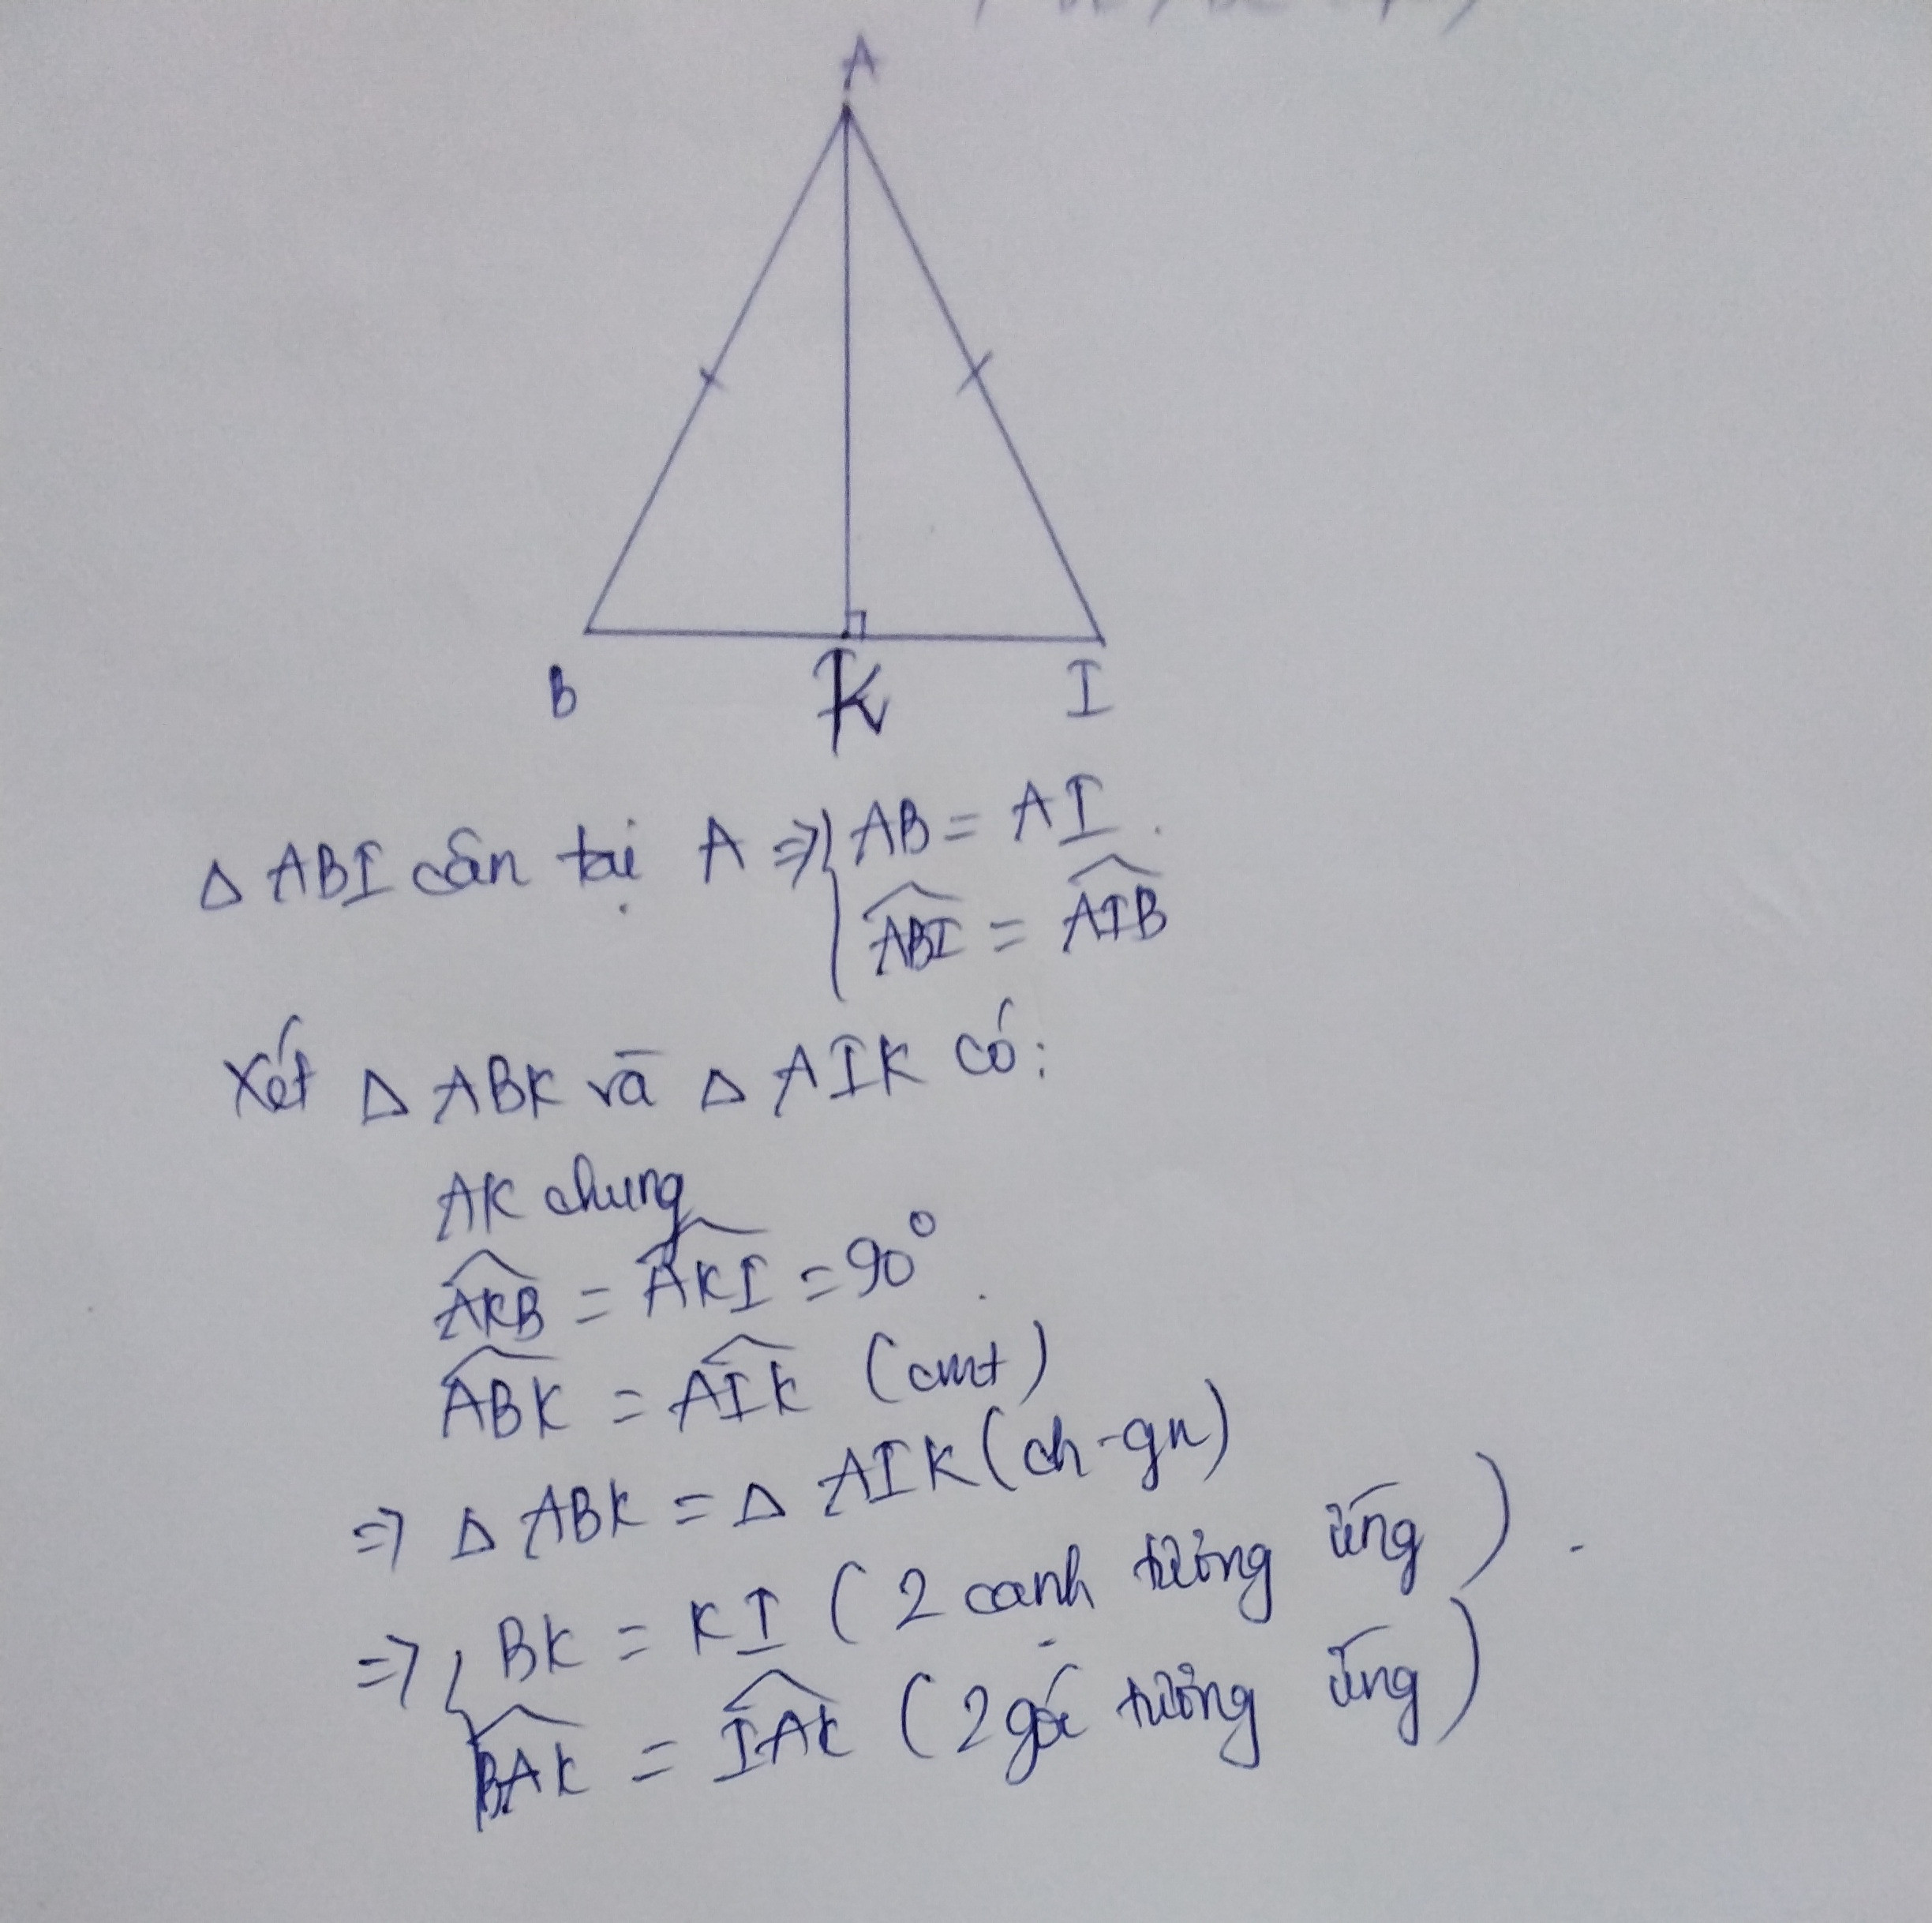 A
B K I
Δ ABI cân tại A ⇒ { AB = AI.
$\widehat{ABI}$ = $\widehat{AIB}$
Xét Δ ABK và Δ AIK có:
AK chung
$\widehat{AKB}$ = $\widehat{AKI}$ = 90°.
$\widehat{ABK}$ = $\widehat{AIK}$ (cmt)
⇒ Δ ABK = Δ AIK (ch-gn)
⇒ { BK = KI (2 cạnh tương ứng).
$\widehat{BAK}$ = $\widehat{IAK}$ (2 góc tương ứng)